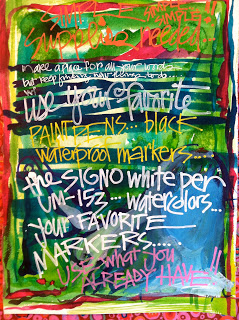 SIMPLE SIMPLE!!
supplies needed...
make a place for all your words
but keep
use your favorite
PAINT PENS... black
waterproof markers....
the SIGNO white pen
UM-153... watercolors...
your FAVORITE
MARKERS....
USE what you
ALREADY HAVE!!